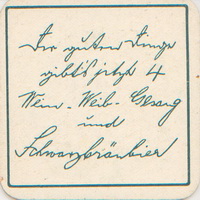 Der guten Dinge
gibt's jetzt 4
Wein - Weib - Gesang
und
Schwarzbräubier